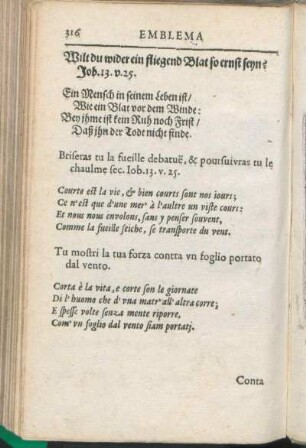 316 EMBLEMA
Wilt du wider ein fliegend Blat so ernst seyn?
Job. 13. v. 25.
Ein Mensch in seinem Leben ist/
Wie ein Blat vor dem Winde:
Bey ihme ist kein Ruh noch Frist/
Daß ihn der Tod nicht finde.
Briseras tu la fueille debatuë, & poursuivras tu le
chaulme sec. Iob. 13. v. 25.
Courte est la vie, & bien courts sont nos iours;
Ce n'est que d'une mer' à l'aultre un viste cours:
Et nous nous envolons, sans y penser souvent,
Comme la fueille seiche, se transporte du vent.
Tu mostri la tua forza contra vn foglio portato
dal vento.
Corta è la vita, e corte son le giornate
Di l'huomo che d'vna matr' all' altra corre;
E spesse volte senza mente riporre,
Com' vn foglio dal vento siam portatj.
Conta